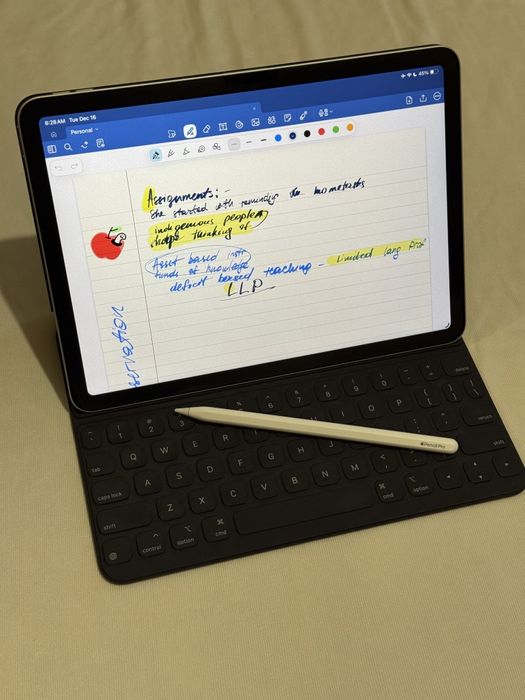 8:28 AM Tue Dec 16
45%
Personal
Assignments: -
She started with reminding the
indigenous people
shape thinking of
Asset based
funds of knowledge
deficit based teaching - Limited lang Prof
LLP
servation
Pencil Pro
~ ! 1 @ 2 3 6 & 7 * 8 ( 9 ) 0 delete
tab Q W E R I O P return
caps lock A S D F G H J K L shift
shift Z X C V B N M < , cmd option
control option cmd